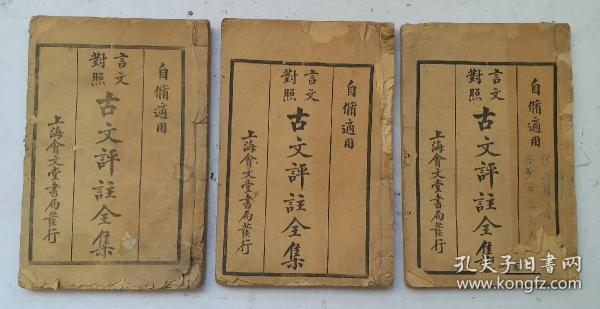 自備適用
言文
對照
古文評註全集
上海會文堂書局發行
自備適用
言文
對照
古文評註全集
上海會文堂書局發行
自備適用
言文
對照
古文評註全集
上海會文堂書局發行
孔夫子旧书网
www.kongfz.com